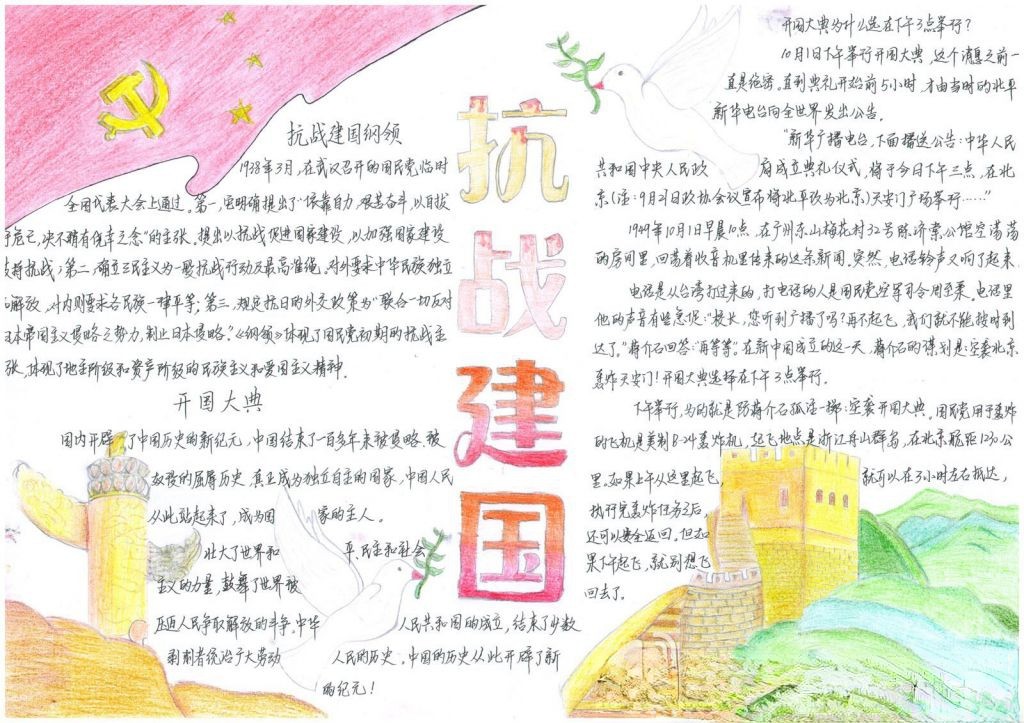 抗战建国
抗战建国纲领
1938年3月,在武汉召开的国民党临时
全国代表大会上通过。第一,它明确提出了“依靠自力,艰苦奋斗,以自拔
于危亡,决不稍有侥幸之念”的主张。提出以抗战促进国家建设,以加强国家建设
支持抗战;第二,确立三民主义为一般抗战行动及最高准绳,对外要求中华民族独立
解放,对内则要求各民族一律平等;第三,规定抗日的外交政策为“联合一切反对
日本帝国主义侵略之势力,制止日本侵略。”《纲领》体现了国民党初期的抗战主
张,体现了地主阶级和资产阶级的民族主义和爱国主义精神.
开国大典
国内开辟了中国历史的新纪元,中国结束了一百多年来被侵略、被
奴役的屈辱历史,真正成为独立自主的国家,中国人民
从此站起来了,成为国家的主人。
壮大了世界和平、民主和社会
主义的力量,鼓舞了世界被
压迫人民争取解放的斗争.中华人民共和国的成立,结束了少数
剥削者统治广大劳动人民的历史,中国的历史从此开辟了新
的纪元!
开国大典为什么选在下午3点举行?
10月1日下午举行开国大典,这个消息之前一
直是绝密。直到典礼开始前5小时,才由当时的北平
新华电台向全世界发出公告。
“新华广播电台,下面播送公告:中华人民
共和国中央人民政府成立典礼仪式,将于今日下午三点,在北
京(注:9月21日政协会议宣布将北平改为北京)天安门广场举行……”
1949年10月1日早晨10点,在广州东山梅花村32号陈济棠公馆空荡荡
的房间里,回荡着收音机里传来的这条新闻。突然,电话铃声又响了起来.
电话是从台湾打过来的,打电话的人是国民党空军司令周至柔。电话里
他的声音有些急促:“校长,您听到广播了吗?再不起飞,我们就不能按时到
达了。”蒋介石回答:“再等等”。在新中国成立的这一天,蒋介石的谋划是:空袭北京,
轰炸天安门!开国大典选择在下午3点举行。
下午举行,为的就是防蒋介石孤注一掷:空袭开国大典。国民党用于轰炸
的飞机是美制B-24轰炸机,起飞地点是浙江舟山群岛,在北京航距1230公
里.如果上午从这里起飞,就可以在3小时左右抵达,
执行完轰炸任务之后,
还可以安全返回。但如
果下午起飞,就别想飞
回去了。